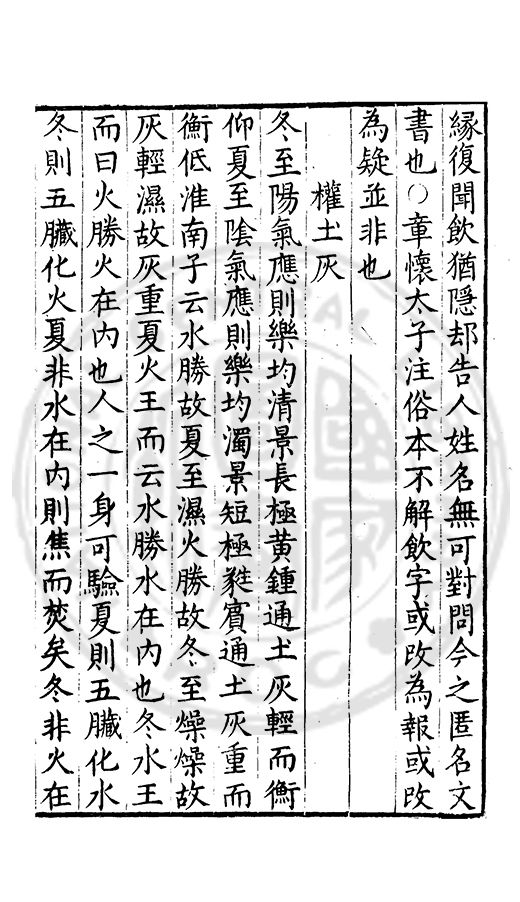 緣復聞飲猶隱却告人姓名無可對問今之匿名文
書也○章懷太子注俗本不解飲字或改為報或改
為疑並非也
權土灰
冬至陽氣應則樂均清景長極黃鍾通土灰輕而衡
仰夏至陰氣應則樂均濁景短極蕤賓通土灰重而
衡低淮南子云水勝故夏至濕火勝故冬至燥燥故
灰輕濕故灰重夏火王而云水勝水在内也冬水王
而曰火勝火在内也人之一身可驗夏則五臟化水
冬則五臟化火夏非水在内則焦而焚矣冬非火在